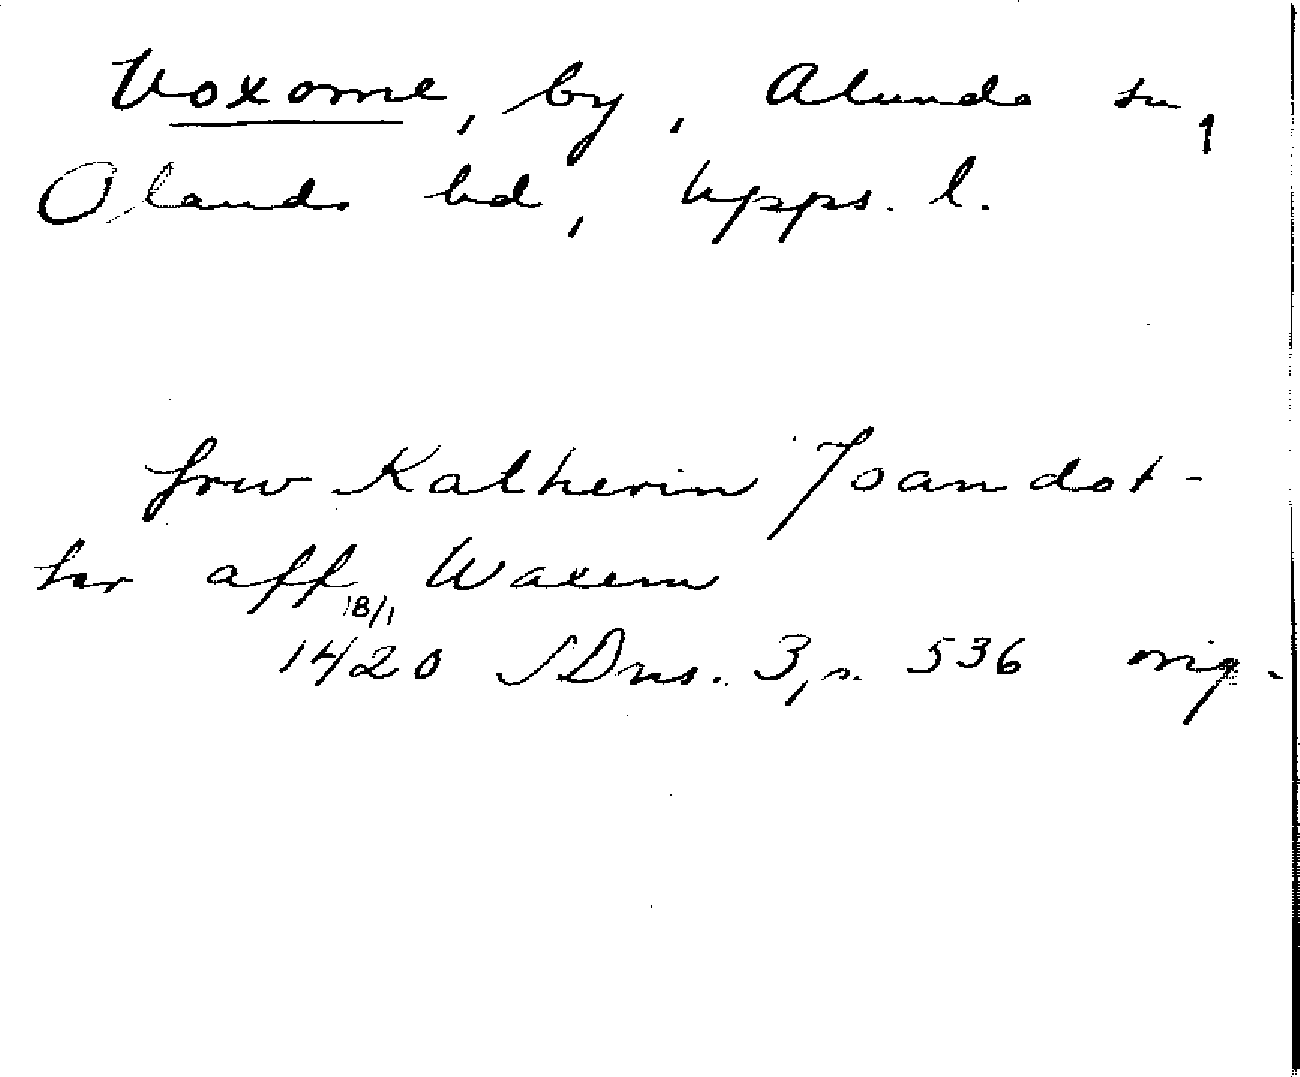 Voxome, by, Alunda sn,
Olands hd, Upps. l.
frw Katherin Joandot-
ter aff Waxem
18/1
1420 SDns. 3, s. 536 orig.